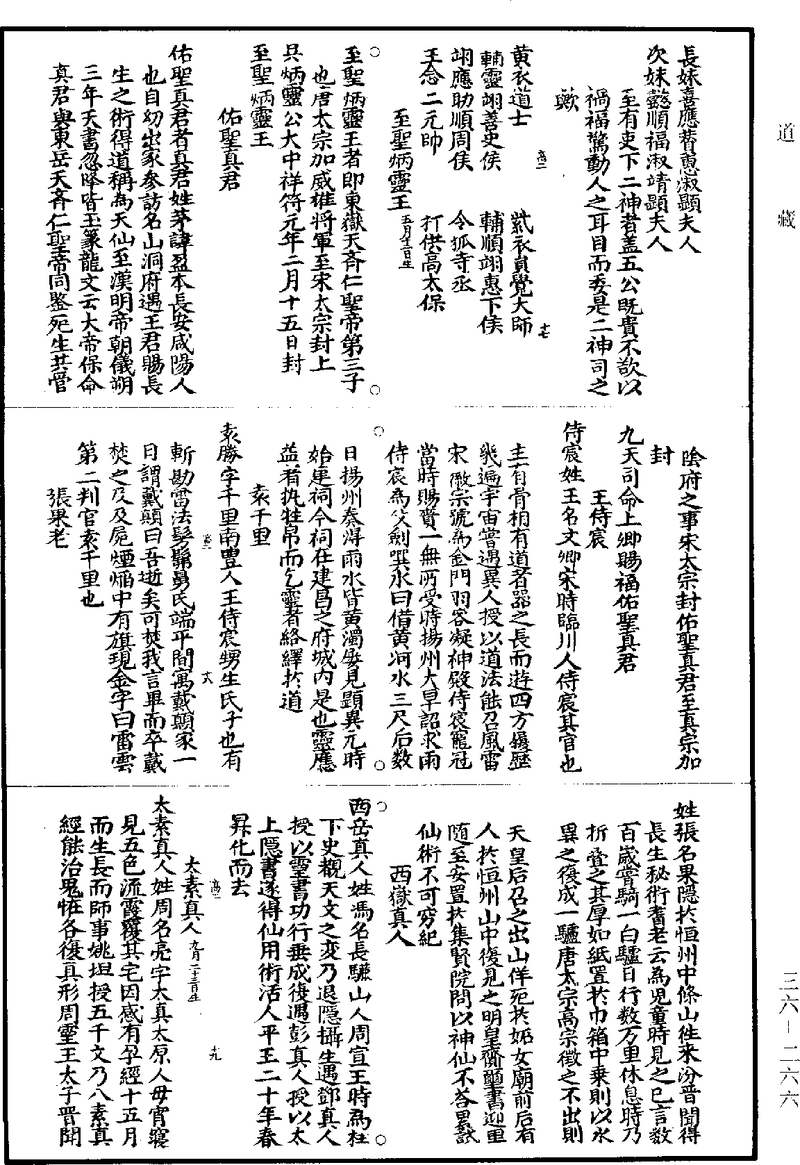 道藏
長妹喜應贊蕙淑顯夫人
次妹懿順福淑靖顯夫人
至有吏下二神者蓋五公既貴不欲以
禍福驚動人之耳目而委是二神司之
歟
黃衣道士
紫衣員覺大師
輔靈翊善史侯
輔順翊惠卞侯
翊應助順周侯
令狐寺丞
王念二元帥
打供高太保
至聖炳靈王
五月十二日生
至聖炳靈王者即東嶽天齊仁聖帝第三子
也唐太宗加威雄將軍至宋太宗封上
具炳靈公大中祥符元年二月十五日封
至聖炳靈王
佑聖真君
佑聖真君者真君姓茅諱盈本長安咸陽人
也自幼出家參訪名山洞府遇王君賜長
生之術得道稱為天仙至漢明帝朝儀朔
三年天書忽降皆玉篆龍文云大帝保命
真君與東岳天齊仁聖帝同鑒死生共管
陰府之事宋太宗封佑聖真君至真宗加
封
九天司命上卿賜福佑聖真君
王侍宸
侍宸姓王名文卿宋時臨川人侍宸其官也
主有骨相有道者器之長而遊四方履歷
幾遍宇宙嘗遇異人授以道法能召風雷
宋徽宗號為金門羽客凝神殿侍宸寵冠
當時賜賚一無所受時揚州大旱詔求雨
侍宸為父劍噀水曰借黃河水三尺后数
日揚州奏得雨水皆黃濁屢見顯異元時
始建祠今祠在建昌之府城內是也靈應
益著執牲帛而乞靈者絡繹於道
袁千里
袁勝字千里南豐人王侍宸甥生氏子也有
斬勘雷法髣髴舅氏端平間寓戴顛家一
日謂戴顛曰吾逝矣可焚我言畢而卒戴
焚之及及屍煙熖中有旗現金字曰雷雲
第二判官袁千里也
張果老
姓張名果隱於恒州中條山往來汾晉間得
長生秘術耆老云為兒童時見之已言数
百歲嘗騎一白驢日行数万里休息時乃
折叠之其厚如紙置於巾箱中乗則以水
噀之復成一驢唐太宗高宗徵之不出則
天皇后召之出山佯死於妬女廟前后有
人於恒州山中復見之明皇齎璽書迎里
随至安置於集賢院問以神仙不荅累試
仙術不可穷紀
西嶽真人
西岳真人姓馮名長驪山人周宣王時為柱
下史觀天文之変乃退隱攝生遇鄧真人
授以靈書功行垂成復遇彭真人授以太
上隱書遂得仙用術活人平王二十年春
昇化而去
太素真人
九月二十三日生
太素真人姓周名亮字太真太原人母宵寢
見五色流霞覆其宅因感有孕經十五月
而生長而師事姚坦授五千文乃八素真
經能治鬼恠各復真形周靈王太子晋聞
三六—二六六